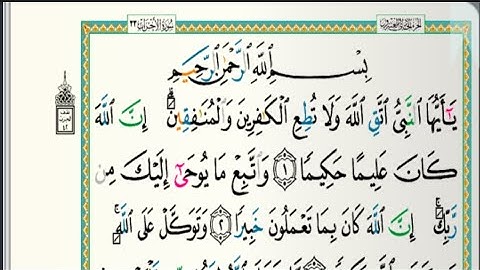 سورة الأحزاب ٣٣
بِسْمِ اللَّهِ الرَّحْمَٰنِ الرَّحِيمِ
يَٰٓأَيُّهَا ٱلنَّبِىُّ ٱتَّقِ ٱللَّهَ وَلَا تُطِعِ ٱلْكَٰفِرِينَ وَٱلْمُنَٰفِقِينَ ۗ إِنَّ ٱللَّهَ
كَانَ عَلِيمًا حَكِيمًا ١ وَٱتَّبِعْ مَا يُوحَىٰٓ إِلَيْكَ مِن
رَّبِّكَ ۚ إِنَّ ٱللَّهَ كَانَ بِمَا تَعْمَلُونَ خَبِيرًا ٢ وَتَوَكَّلْ عَلَى ٱللَّهِ ۚ